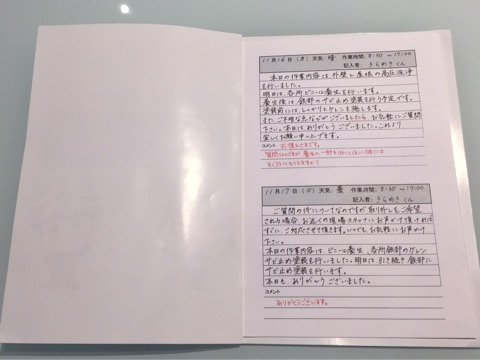 11月16日(月) 天気:晴 作業時間:8:30~17:00
記入者:きらめきくん
本日の作業内容は、外壁と屋根の高圧洗浄
を行いました。
明日は、各所ビニール養生を行います。
養生後は鉄部のサビ止め塗装を行う予定です。
塗装前には、しっかりとケレンを施します。
また、ご不明な点などございましたら、お気軽にご質問
下さい。本日はありがとうございました。これより
宜しくお願い申し上げます。
コメント お価えさまです。
質問なのですが、養生の一部を外してほしい時には
どのようにしたらよいですか?
11月17日(火) 天気:曇 作業時間:8:30~17:00
記入者:きらめきくん
ご質問の件についてなのですが取り外しをご希望
される場合、お近くの現場スタッフにお声がけ頂ければ
すぐに、ご対応させて頂きます。いつでも、お気軽にお声がけ
下さい。
本日の作業内容は、ビニール養生、各所鉄部のケレン
サビ止め塗装を行いました。明日は、引き続き、鉄部に
サビ止め塗装を行います。
本日も、ありがとうございました。
コメント
ありがとうございます。